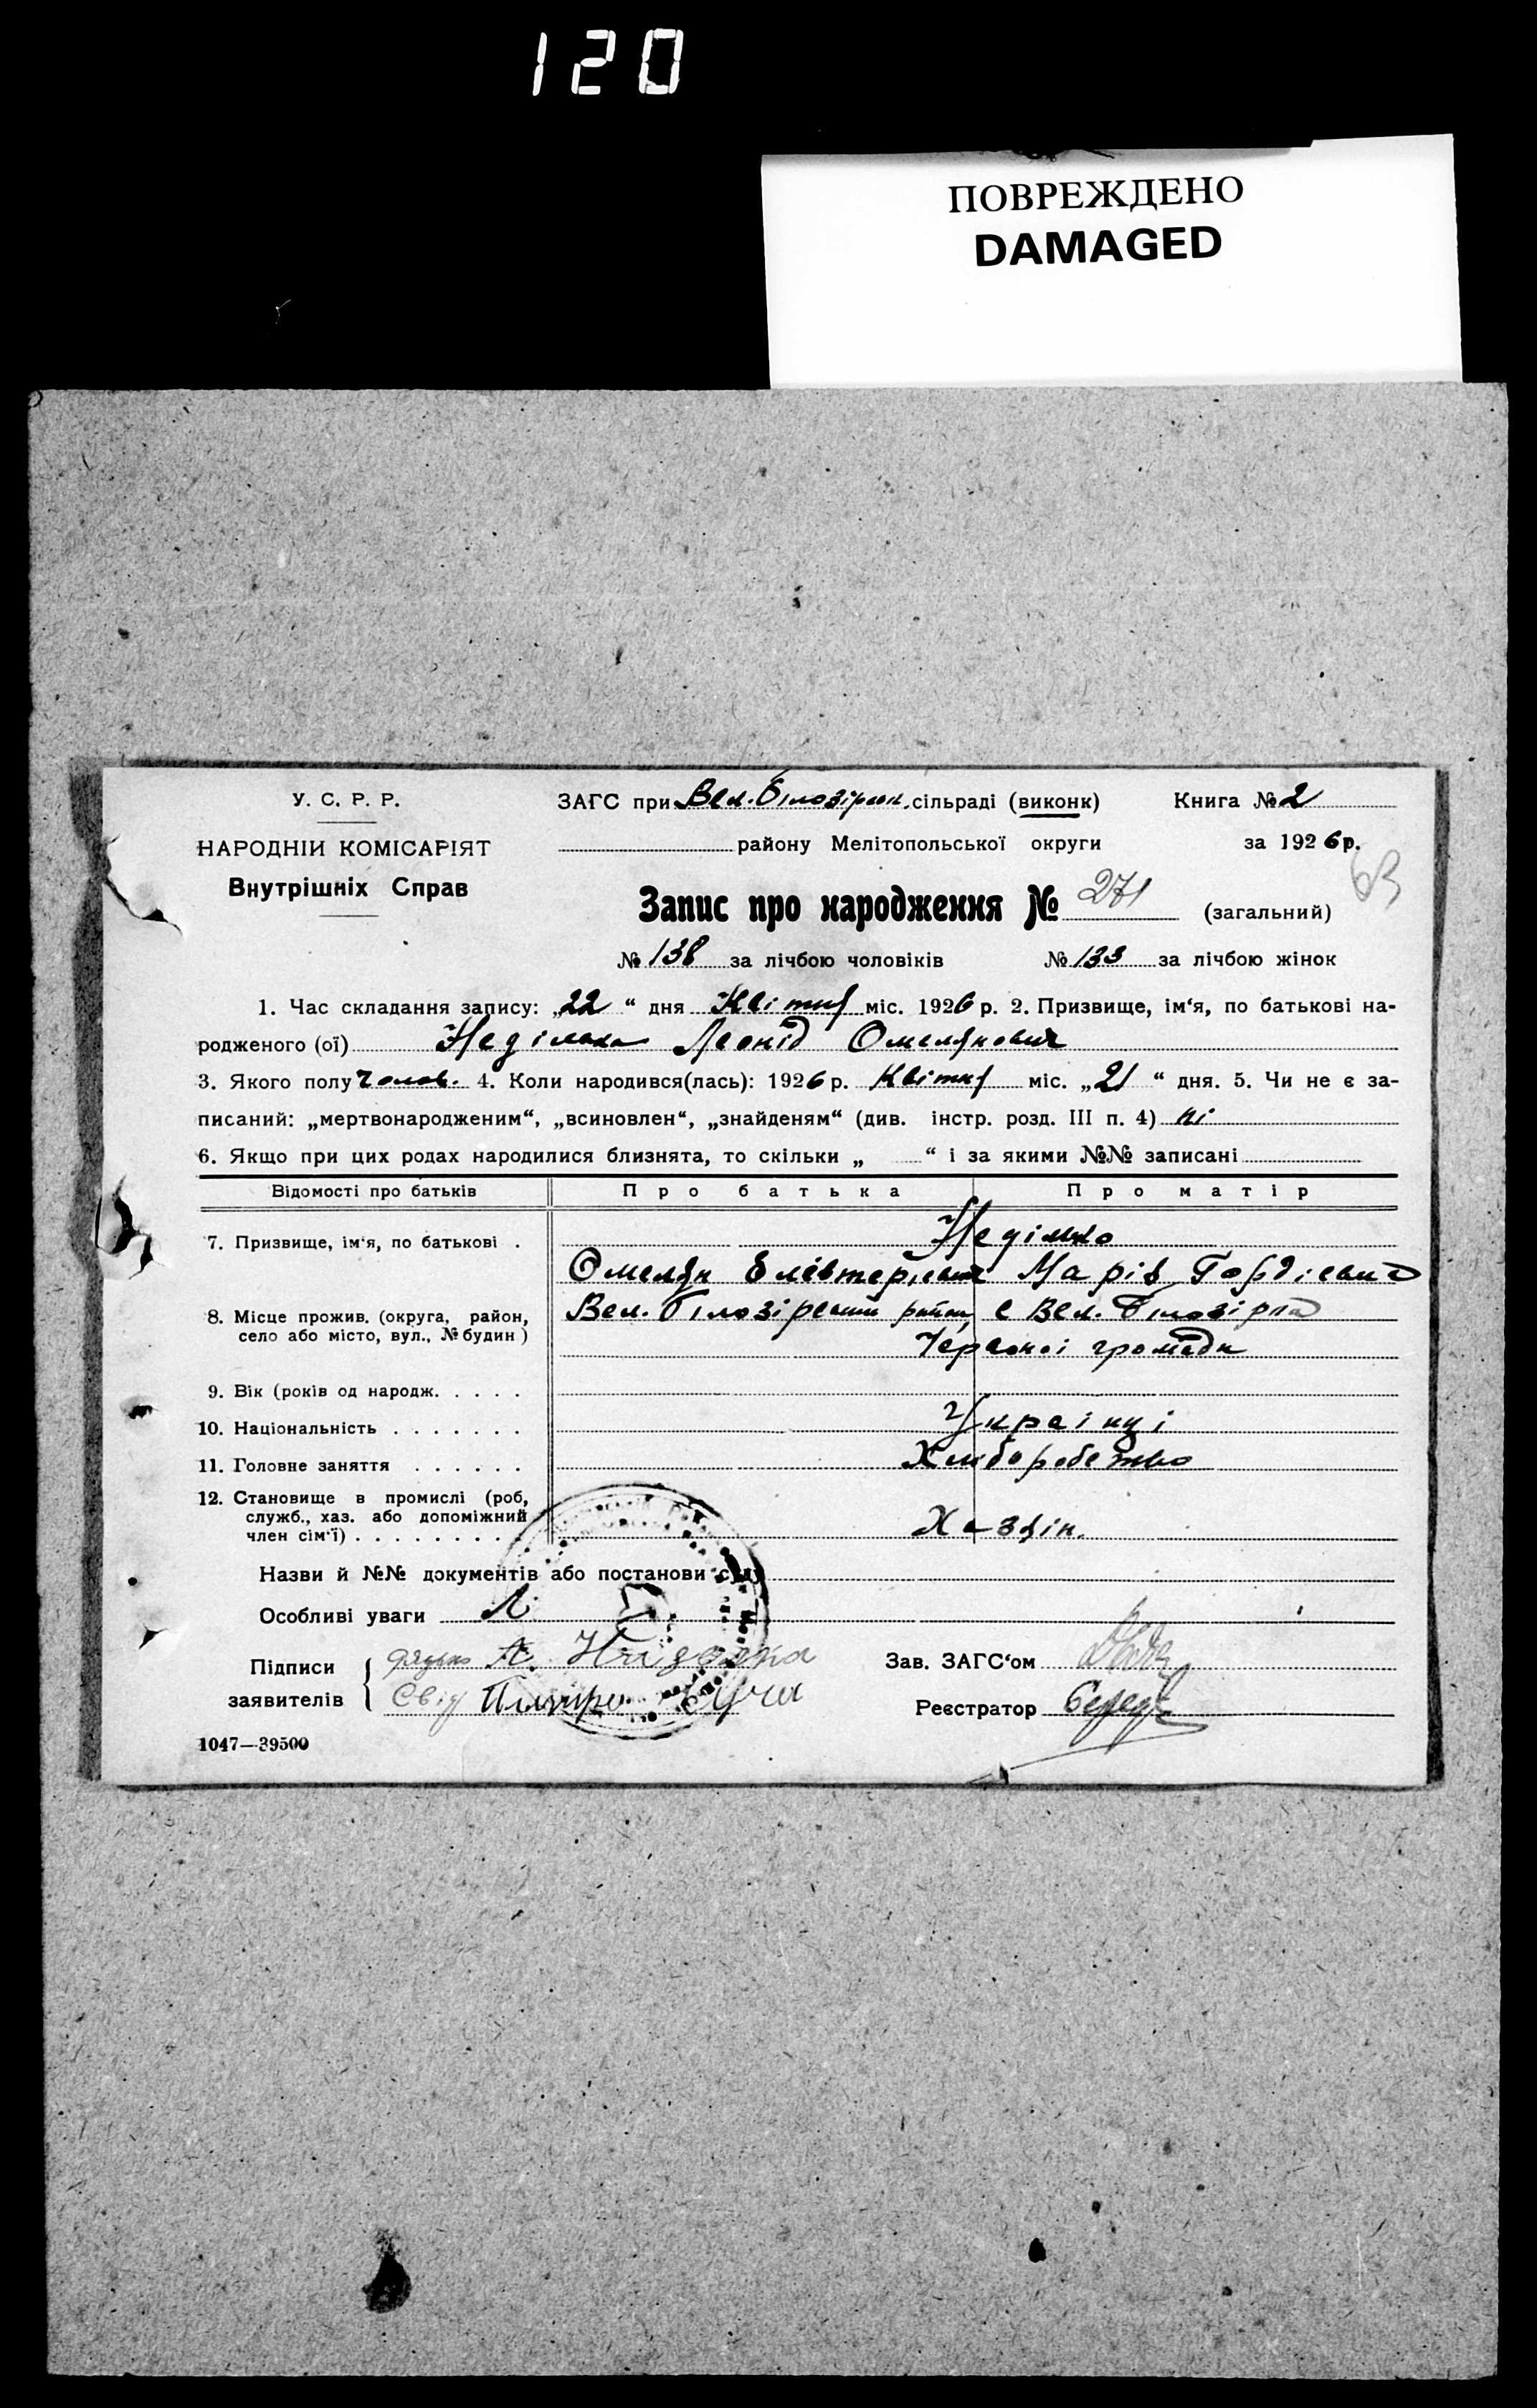 120
ПОВРЕЖДЕНО
DAMAGED
У. С. Р. Р.
НАРОДНІЙ КОМІСАРІЯТ
Внутрішніх Справ
ЗАГС при Вел. Білозірськ. сільраді (виконк)
Книга № 2
району Мелітопольської округи
за 1926 р.
63
Запис про народження № 271 (загальний)
№ 138 за лічбою чоловіків № 133 за лічбою жінок
1. Час складання запису: „22“ дня Квітня міс. 1926 р. 2. Призвище, ім‘я, по батькові на-
родженого (ої) Неділько Леонід Омелянович
3. Якого полу Чолов. 4. Коли народився(лась): 1926 р. Квітня міс. „21“ дня. 5. Чи не є за-
писаний: „мертвонародженим“, „всиновлен“, „знайденям“ (див. інстр. розд. III п. 4) ні
6. Якщо при цих родах народилися близнята, то скільки „ “ і за якими №№ записані
Відомості про батьків Про батька Про матір
7. Призвище, ім‘я, по батькові . Неділько
Омелян Елевтерієвич Марія Гордієвна
8. Місце прожив. (округа, район,
село або місто, вул., № будин)
Вел. Білозірський район, с Вел. Білозірка
Червоної громади
9. Вік (років од народж. . . . .
10. Національність . . . . . . . Українці
11. Головне заняття . . . . . . Хліборобство
12. Становище в промислі (роб,
служб., хаз. або допоміжний
член сім‘ї) . . . . . . . . . Хазяїн.
Назви й №№ документів або постанови суду
Особливі уваги
Підписи
заявителів
А.
Свід
Зав. ЗАГС‘ом
Реєстратор
1047—39500